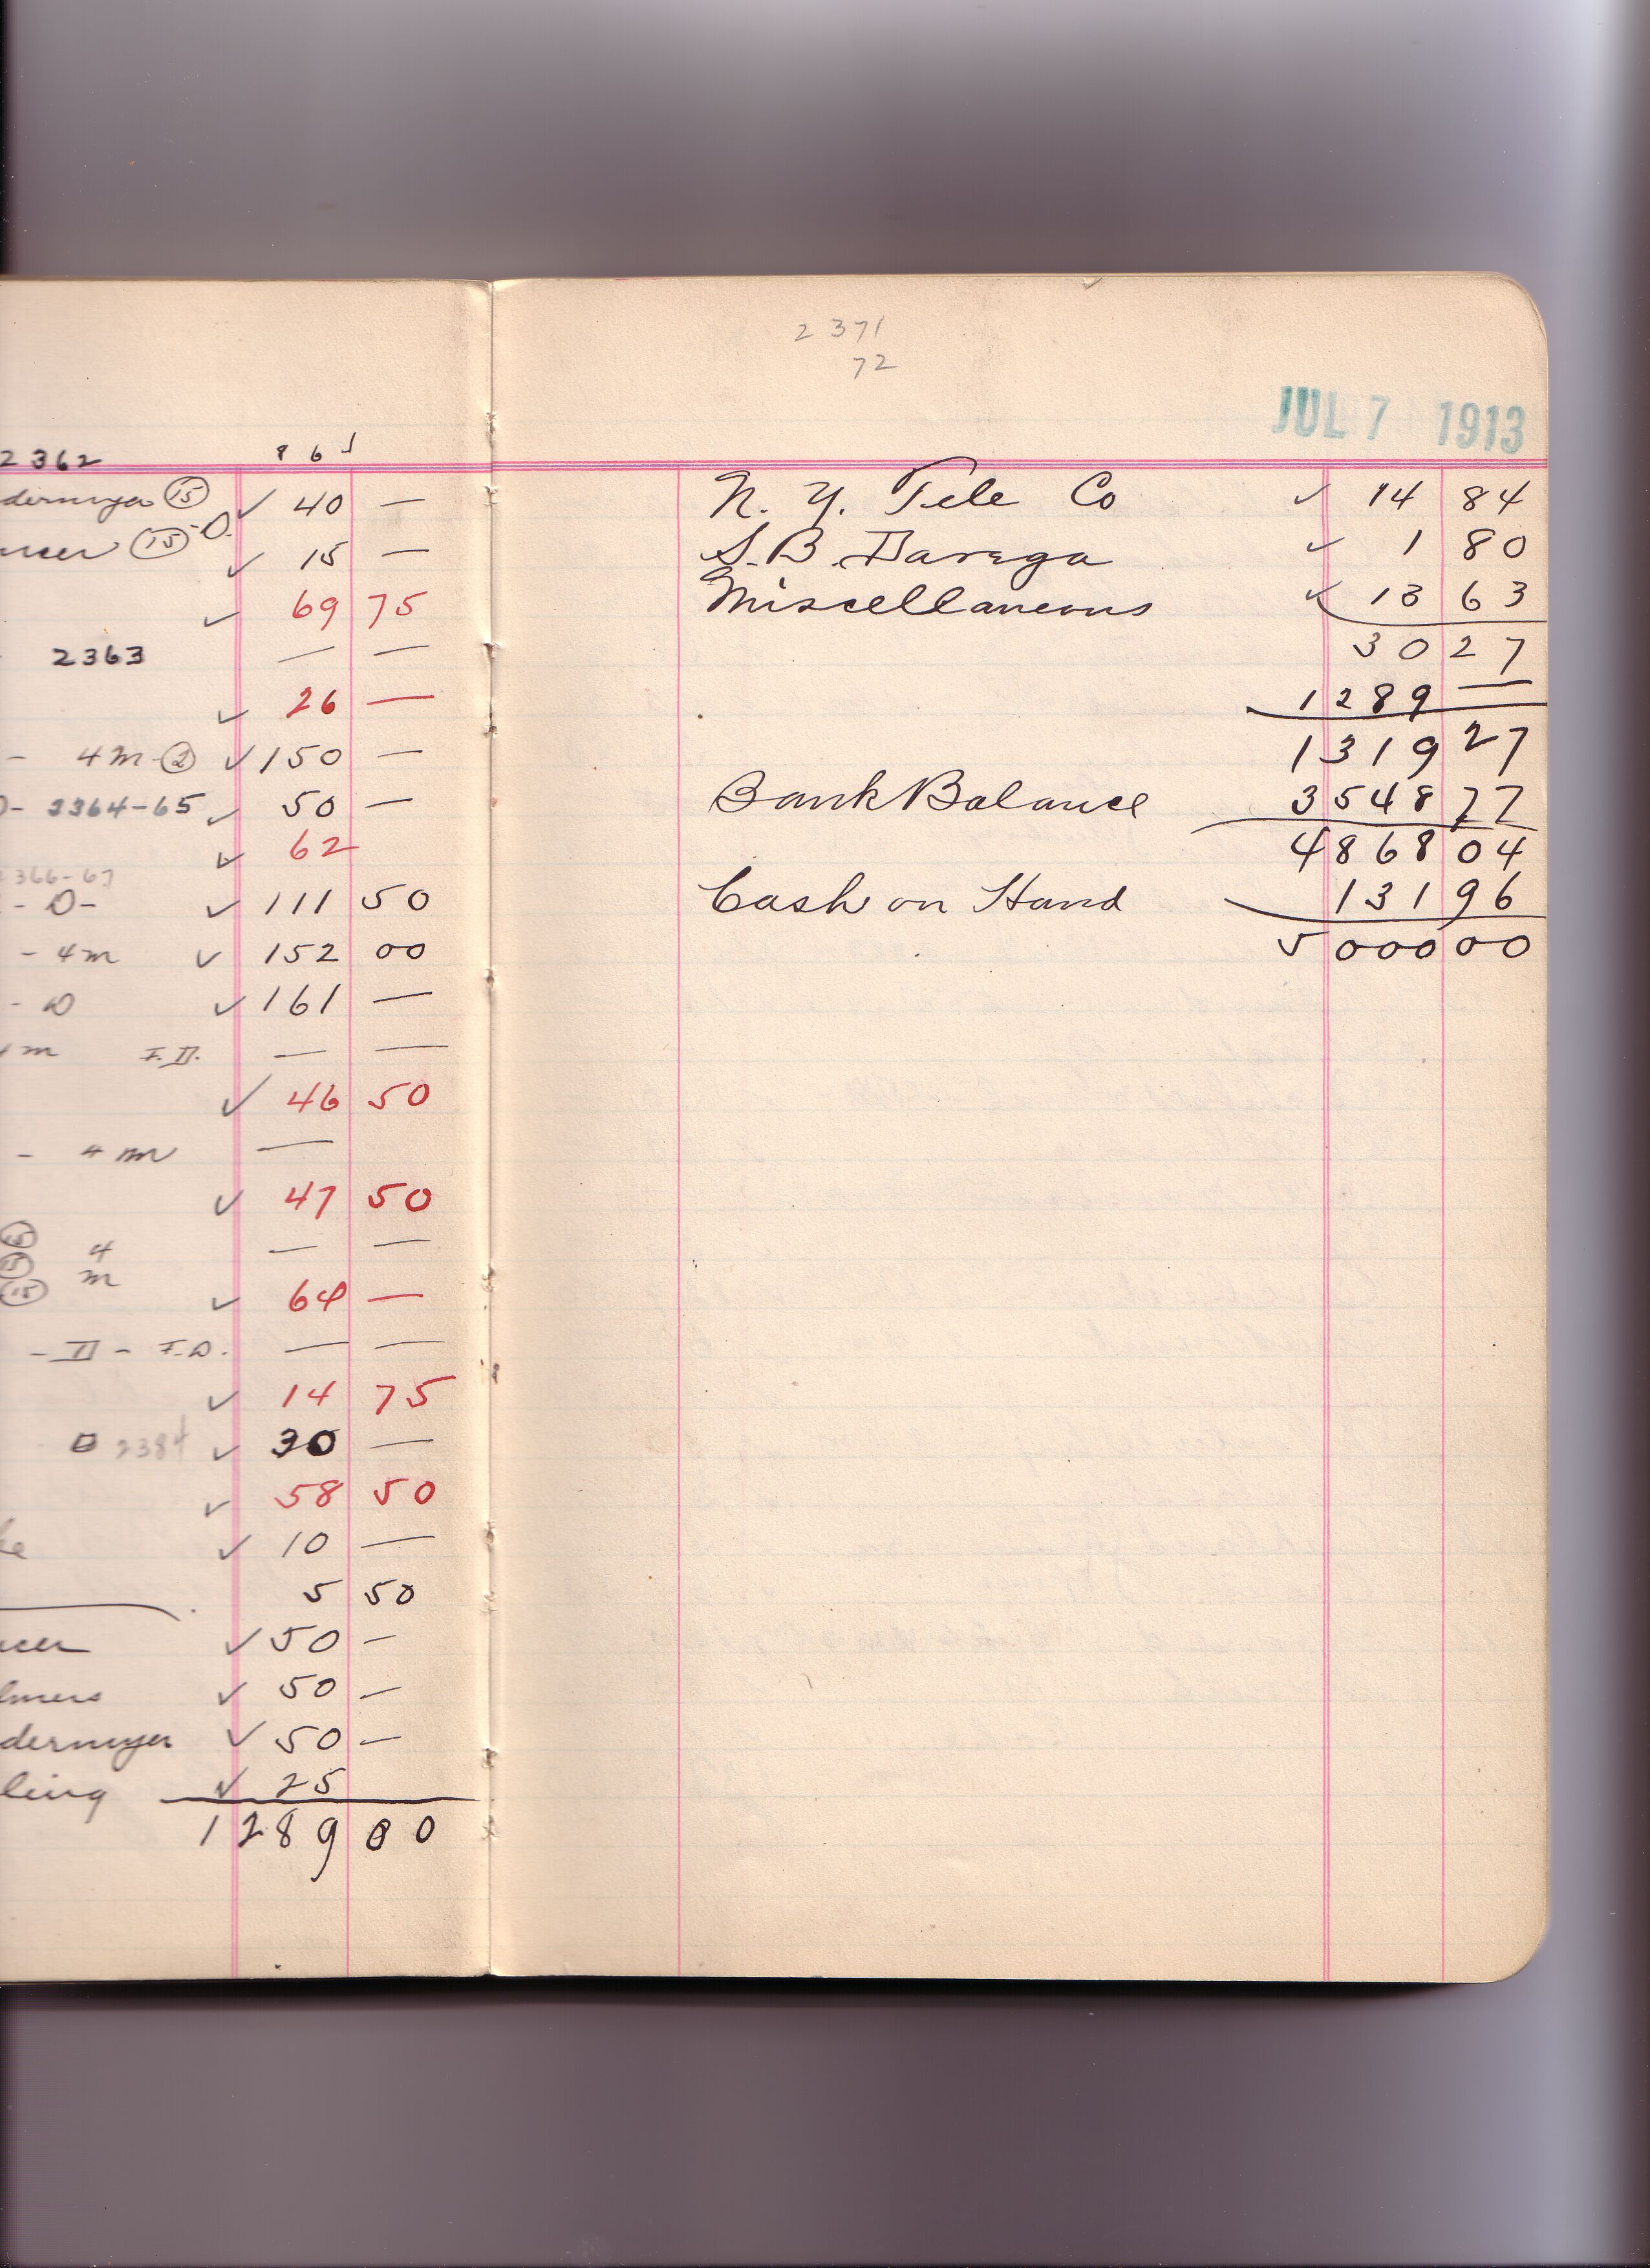 2362 861
dermeyer (15) ✓ 40 —
ncer (15) -D. ✓ 15 —
✓ 69 75
2363 — —
✓ 26 —
- 4m - (2) ✓ 150 —
- 2364-65 ✓ 50 —
✓ 62
366-67
- D - ✓ 111 50
- 4m ✓ 152 00
- D ✓ 161 —
m F.D. — —
✓ 46 50
- 4m —
✓ 47 50
(15) 4 — —
(15) m
(15) ✓ 64 —
- II - F.D. — —
✓ 14 75
2384 ✓ 30 —
✓ 58 50
ke ✓ 10 —
5 50
✓ 50 —
lmers ✓ 50 —
dermeyer ✓ 50 —
ling ✓ 25
1289 00
2371
72
JUL 7 1913
N. Y. Tele Co ✓ 14 84
S. B. Davega ✓ 1 80
Miscellaneous ✓ 13 63
30 27
1289 —
1319 27
Bank Balance 3548 77
4868 04
Cash on Hand 131 96
5000 00